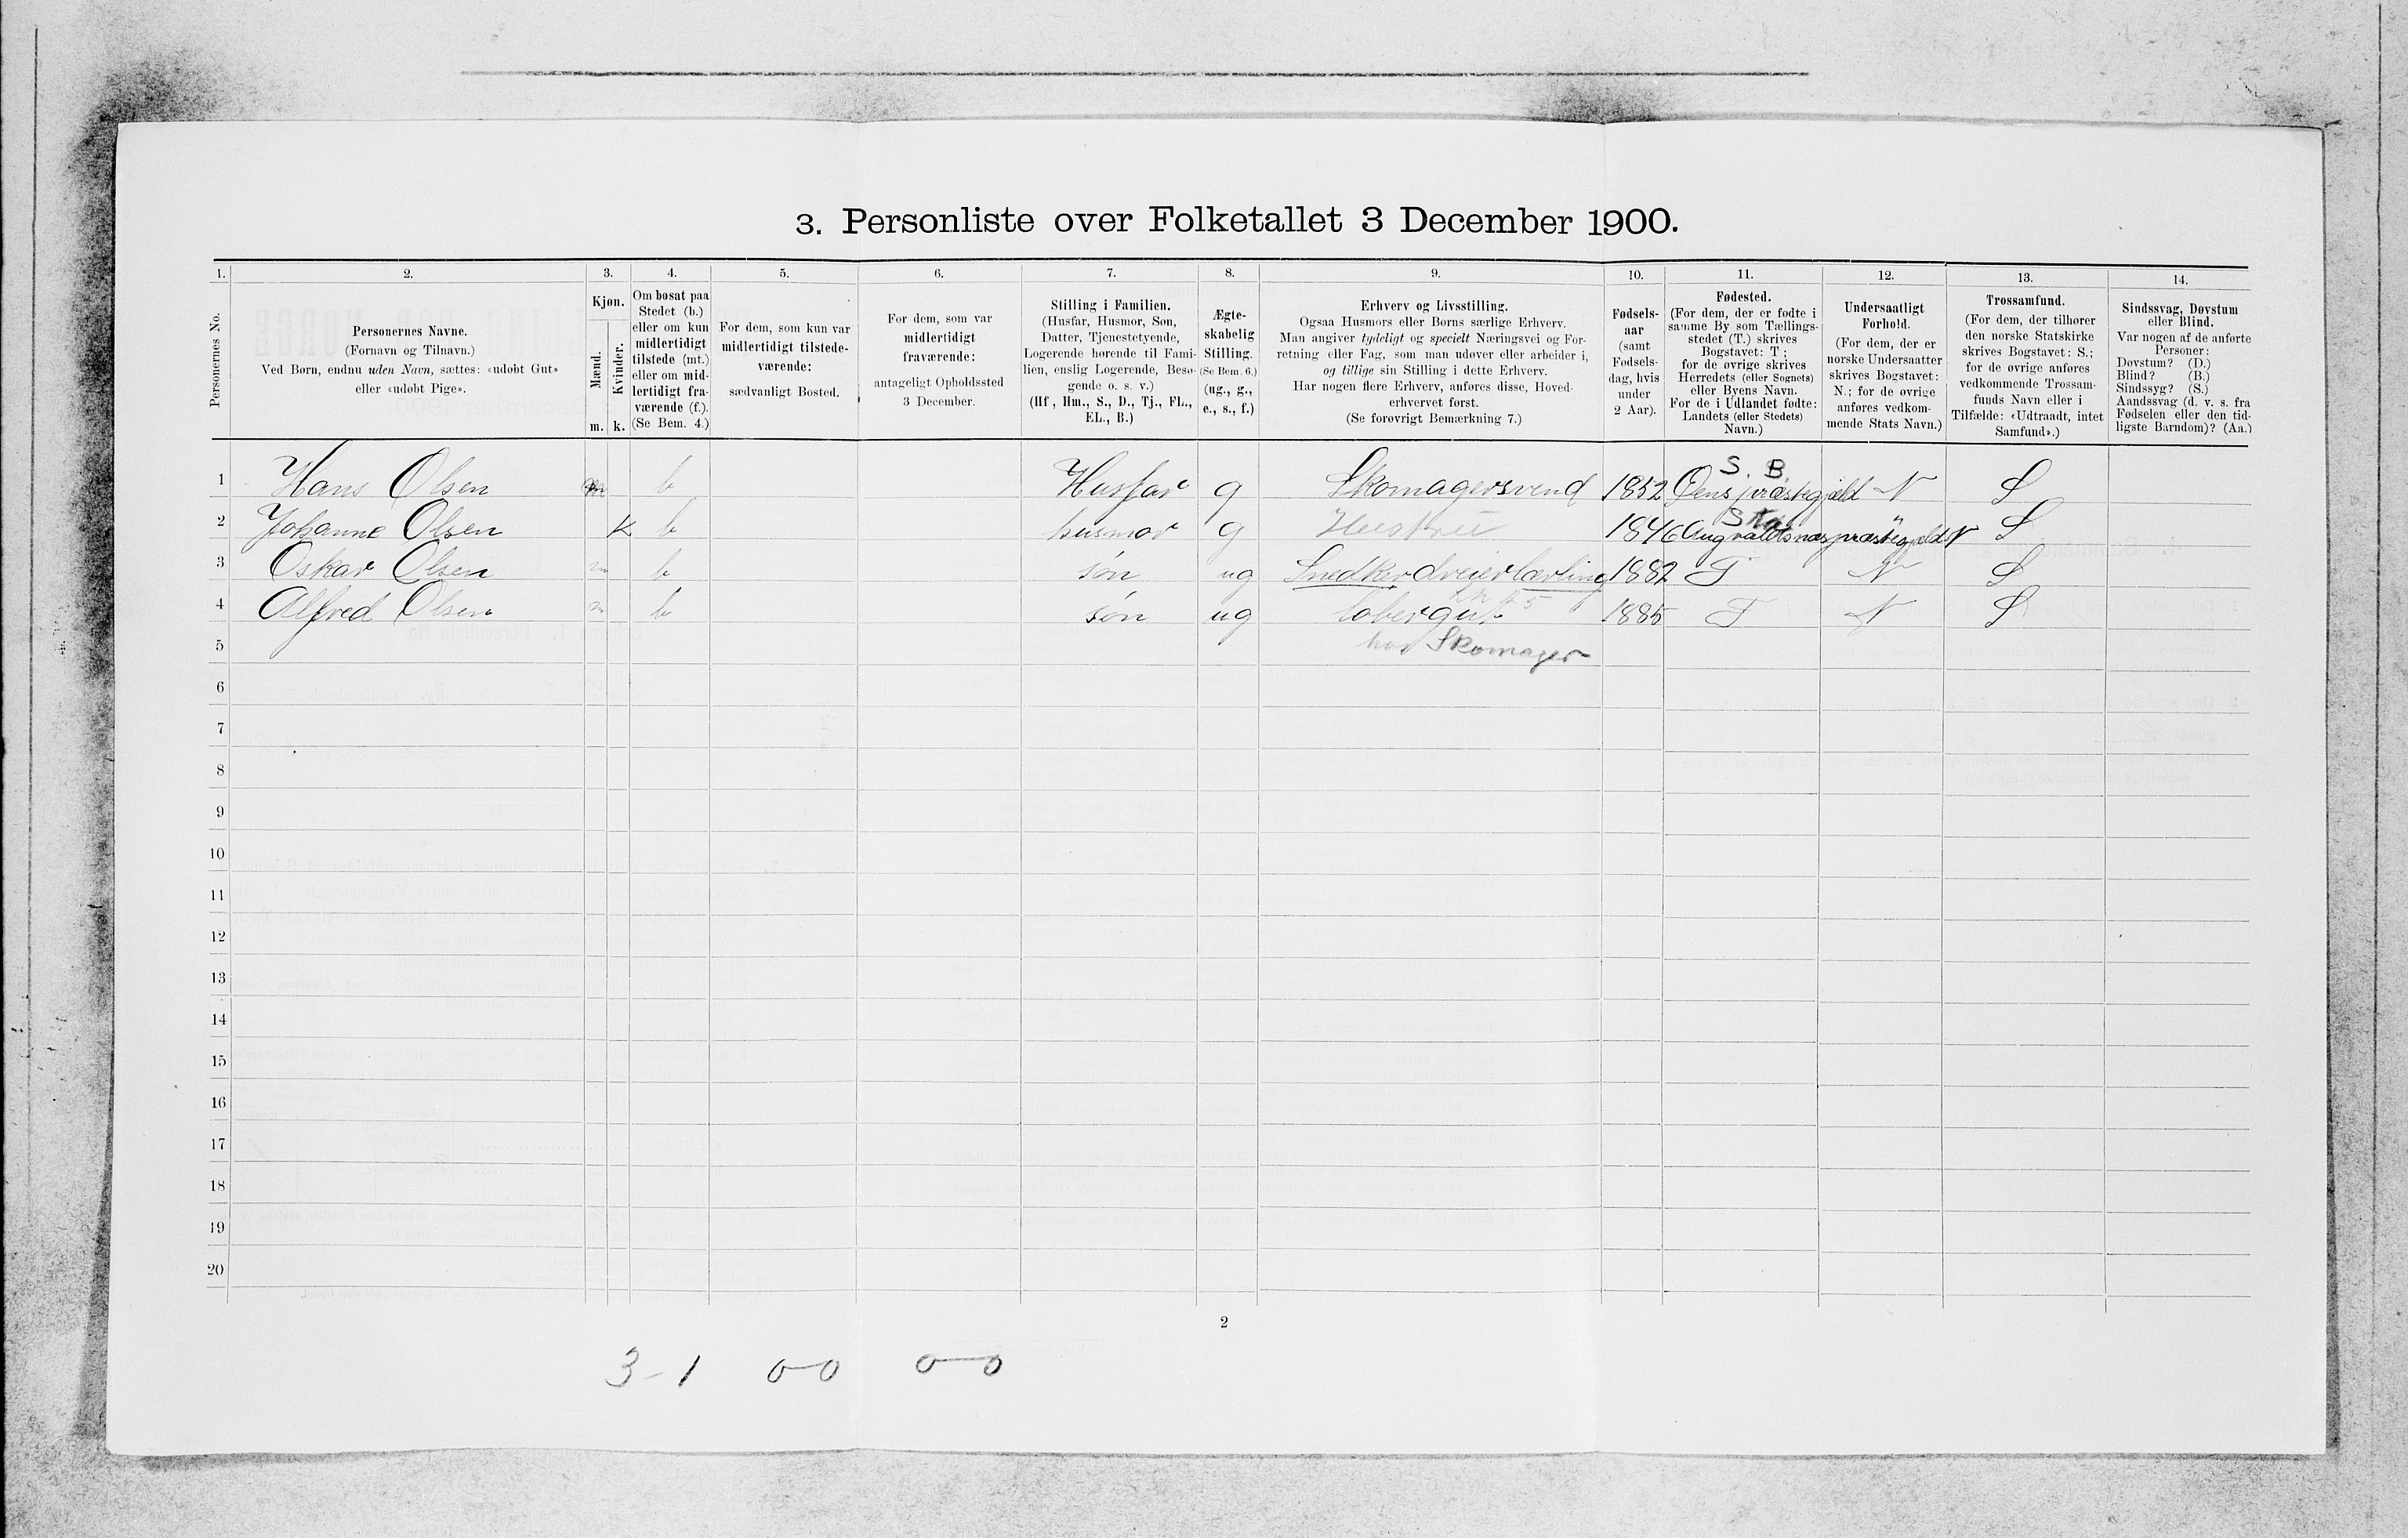 3. Personliste over Folketallet 3 December 1900.
1. 2. 3. 4. 5. 6. 7. 8. 9. 10. 11. 12. 13. 14.
Personernes No.
Personernes Navne.
(Fornavn og Tilnavn.)
Ved Børn, endnu uden Navn, sættes: «udøbt Gut»
eller «udøbt Pige».
Kjøn.
Mænd.
Kvinder.
m. k.
Om bosat paa
Stedet (b.)
eller om kun
midlertidigt
tilstede (mt.)
eller om mid-
lertidigt fra-
værende (f.).
(Se Bem. 4.)
For dem, som kun var
midlertidigt tilstede-
værende:
sædvanligt Bosted.
For dem, som var
midlertidigt
fraværende:
antageligt Opholdssted
3 December.
Stilling i Familien.
(Husfar, Husmor, Søn,
Datter, Tjenestetyende,
Logerende hørende til Fami-
lien, enslig Logerende, Besø-
gende o. s. v.)
(Hf., Hm., S., D., Tj., FL.,
EL., B.)
Ægte-
skabelig
Stilling.
(Se Bem. 6.)
(ug., g.,
e., s., f.)
Erhverv og Livsstilling.
Ogsaa Husmors eller Børns særlige Erhverv.
Man angiver tydeligt og specielt Næringsvei og For-
retning eller Fag, som man udøver eller arbeider i,
og tillige sin Stilling i dette Erhverv.
Har nogen flere Erhverv, anføres disse, Hoved-
erhvervet først.
(Se forøvrigt Bemærkning 7.)
Fødsels-
aar
(samt
Fødsels-
dag, hvis
under
2 Aar).
Fødested.
(For dem, der er fødte i
samme By som Tællings-
stedet (T.) skrives
Bogstavet: T;
for de øvrige skrives
Herredets (eller Sognets)
eller Byens Navn.
For de i Udlandet fødte:
Landets (eller Stedets)
Navn.)
Undersaatligt
Forhold.
(For dem, der er
norske Undersaatter
skrives Bogstavet:
N.; for de øvrige
anføres vedkom-
mende Stats Navn.)
Trossamfund.
(For dem, der tilhører
den norske Statskirke
skrives Bogstavet: S.;
for de øvrige anføres
vedkommende Trossam-
funds Navn eller i
Tilfælde: «Udtraadt, intet
Samfund».)
Sindssvag, Døvstum
eller Blind.
Var nogen af de anførte
Personer:
Døvstum? (D.)
Blind? (B.)
Sindssyg? (S.)
Aandssvag (d. v. s. fra
Fødselen eller den tid-
ligste Barndom)? (Aa.)
S. B
1 Hans Olsen m b Husfar g Skomagersvend 1852 Oens præstegjeld N S
2 Johanne Olsen k b husmor g Hustru 1846 Augvaldsnæs præstegjeld N S
3 Oskar Olsen m b søn ug Snedkerdreierlærling 1882 T N S
4 Alfred Olsen m b søn ug løbergut 1885 T N S
5 hos Skomager
6
7
8
9
10
11
12
13
14
15
16
17
18
19
20
2
3-1 0-0 0-0